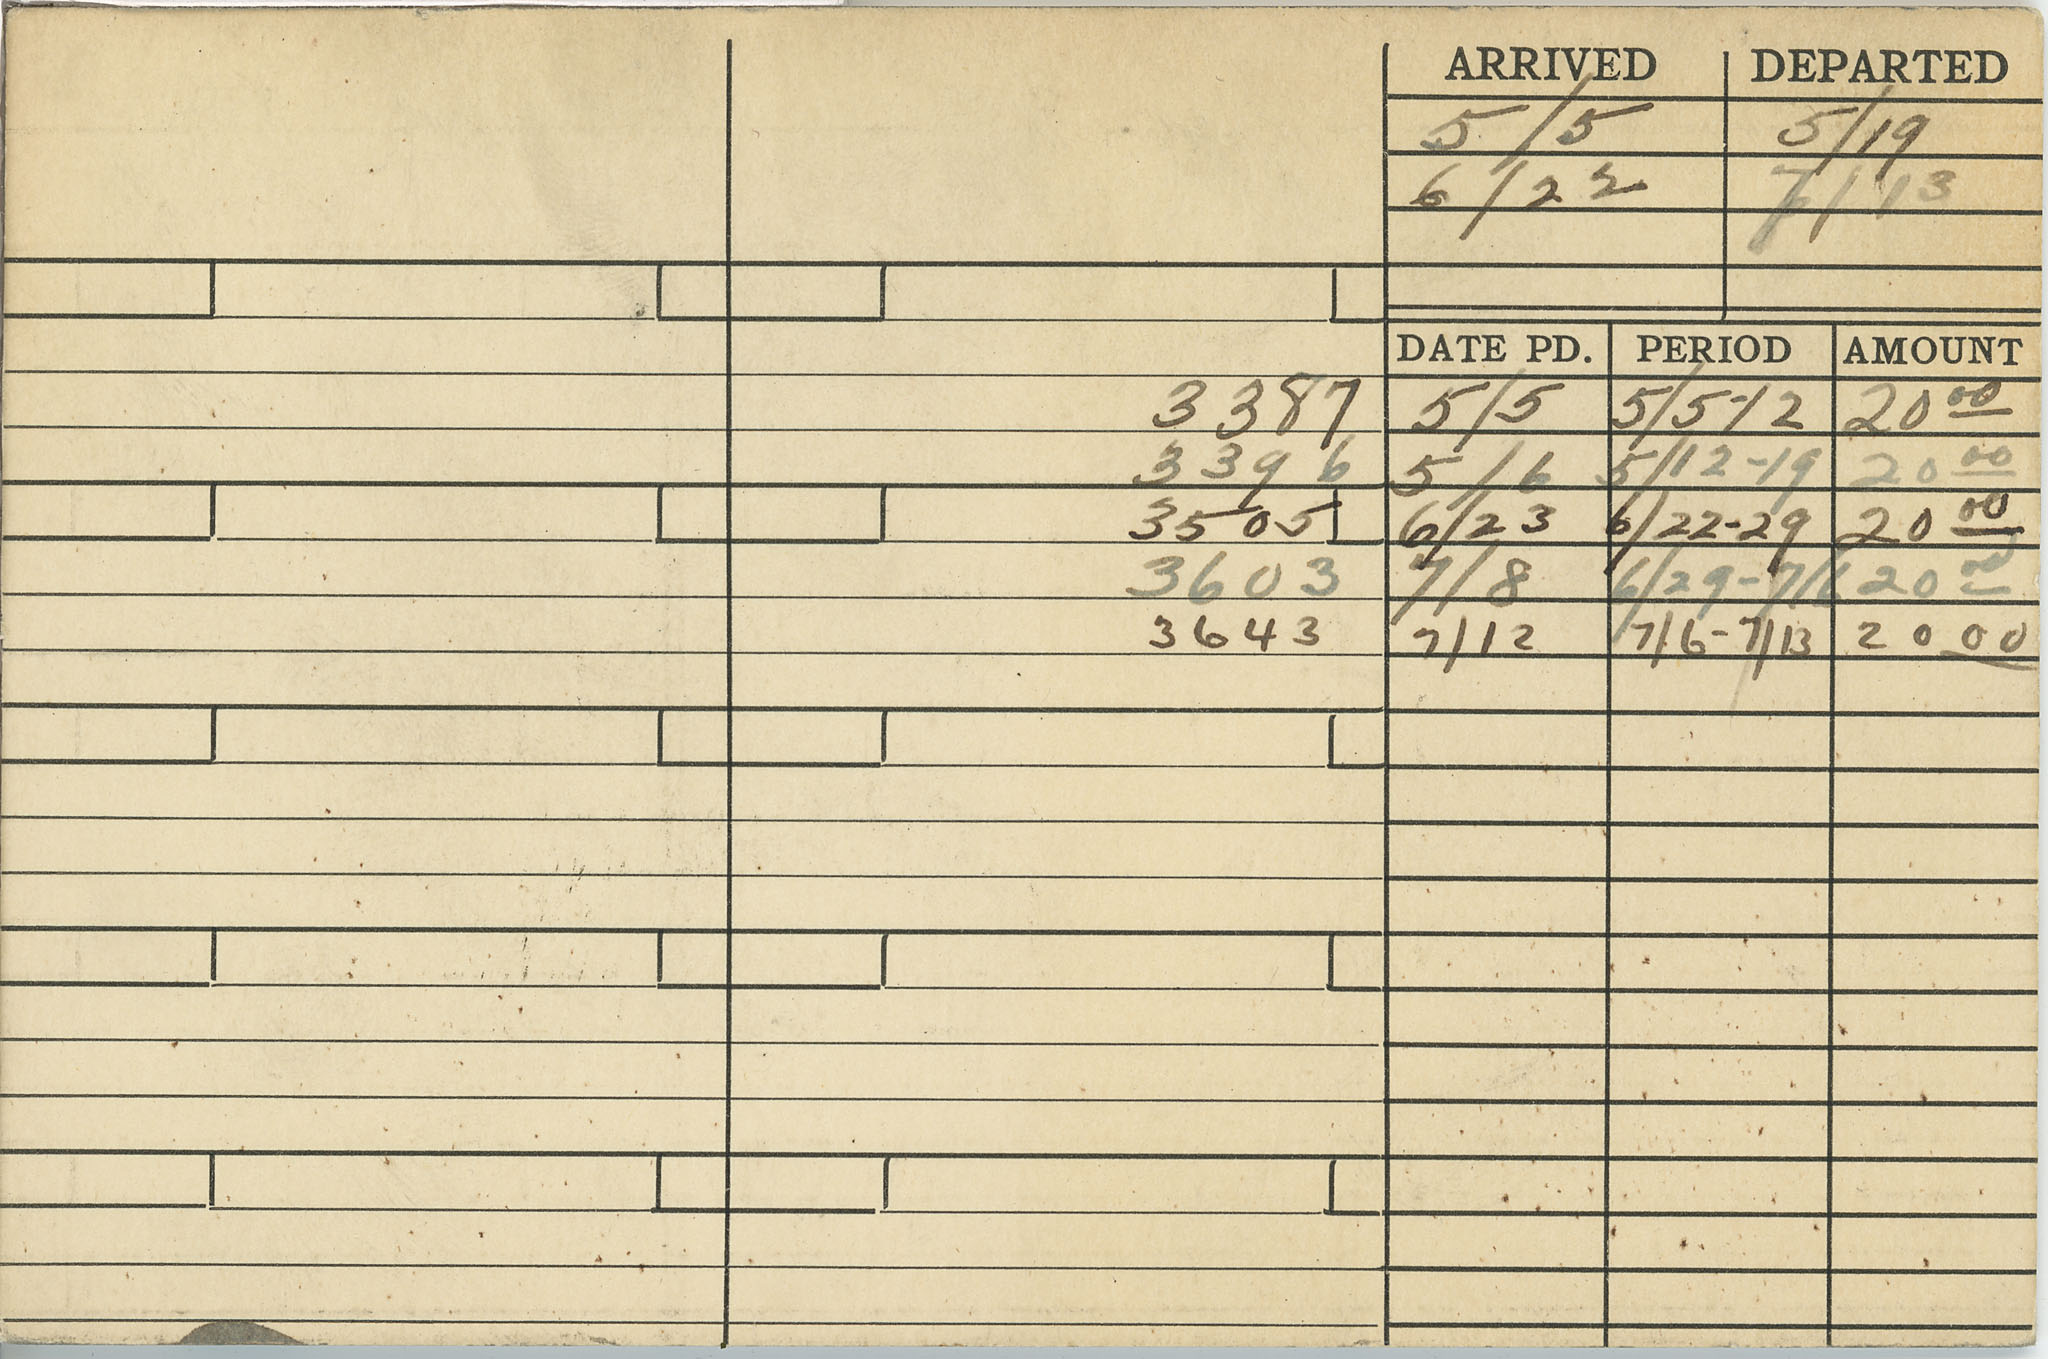 ARRIVED DEPARTED
5/5 5/19
6/22 7/13
DATE PD. PERIOD AMOUNT
3387 5/5 5/5-12 20 00
3396 5/6 5/12-19 20 00
3505 6/23 6/22-29 20 00
3603 7/8 6/29-7/6 20 00
3643 7/12 7/6-7/13 20 00